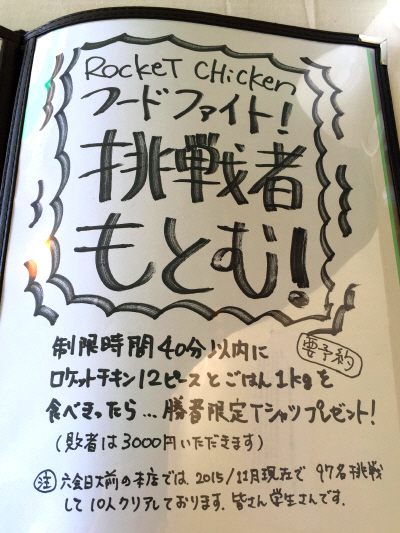 RockeT CHicken
フードファイト!
挑戦者
もとむ!
制限時間40分以内に
要予約
ロケットチキン12ピースとごはん1kgを
食べきったら...勝者限定Tシャツプレゼント!
(敗者は3000円いただきます)
注 六会日大前の本店では、2015/11月現在で 97名挑戦
して10人クリアしております。皆さん学生さんです。